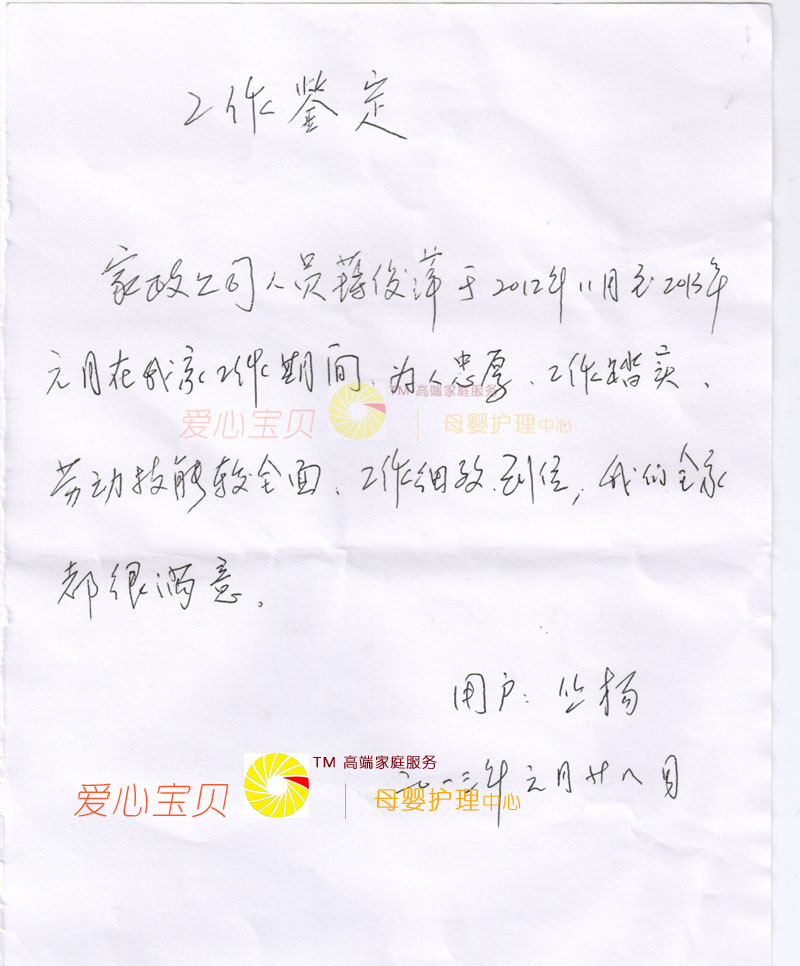 工作鉴定
家政公司人员蒋俊萍于2012年11月至2013年
元月在我家工作期间、为人忠厚、工作踏实、
TM 高端家庭服务
爱心宝贝 母婴护理中心
劳动技能较全面、工作细致、到位，我们全家
都很满意。
用户：丛杨
TM 高端家庭服务
二〇一三年元月廿八日
爱心宝贝 母婴护理中心